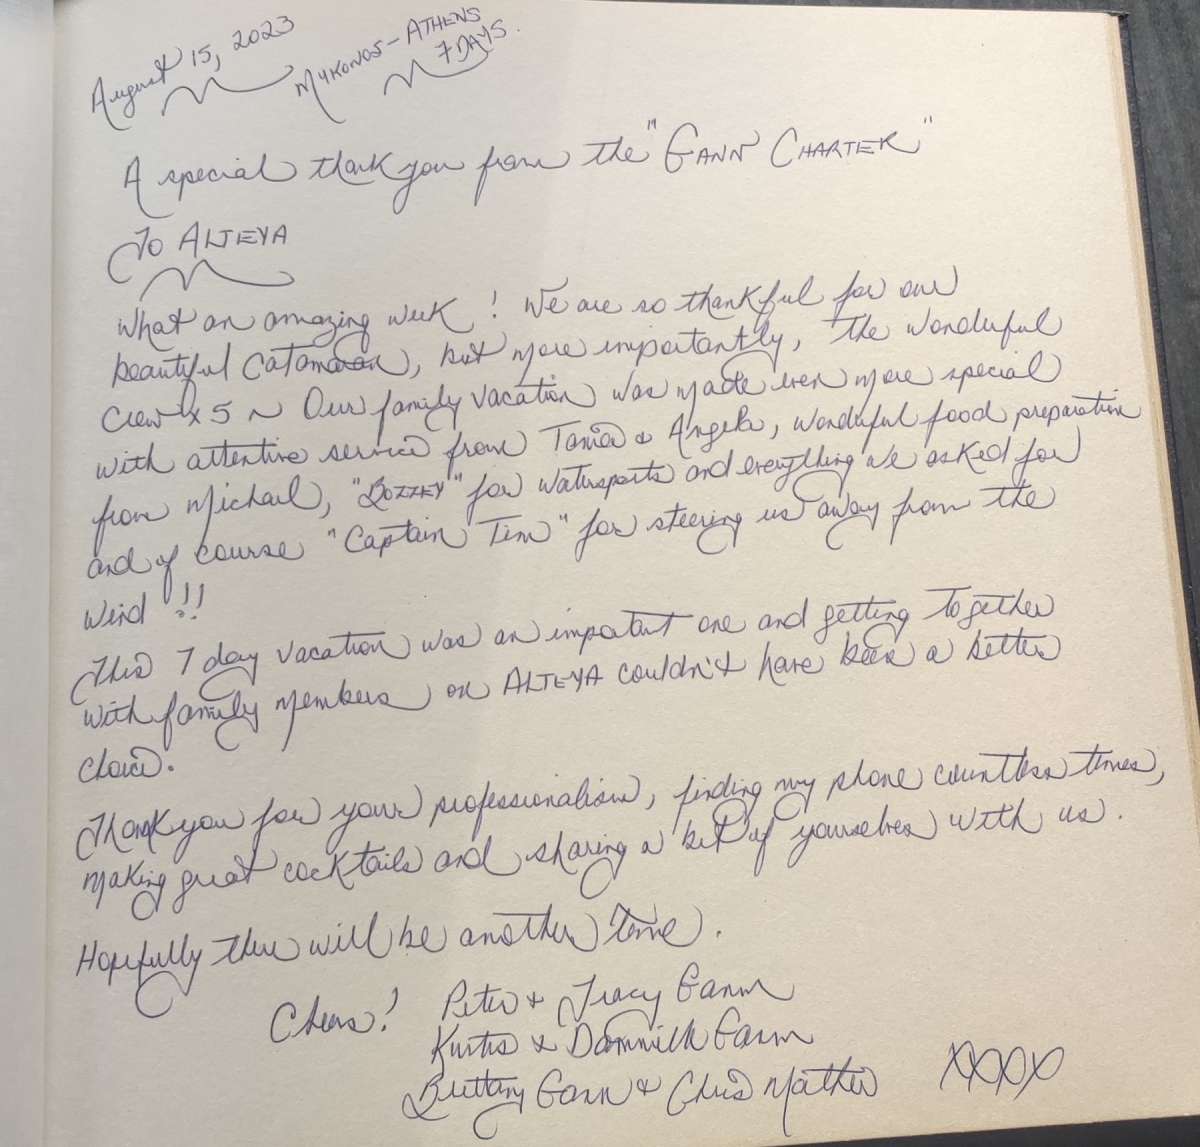 August 15, 2023
MYKONOS - ATHENS
7 DAYS.
A special thank you from the "GANN CHARTER"
To ALTEYA
What an amazing week! We are so thankful for our
beautiful catamaran, but more importantly, the wonderful
crew x 5 ~ Our family vacation was made even more special
with attentive service from Tania & Angela, wonderful food preparation
from Michael, "BOZZEY" for watersports and everything we asked for
and of course "Captain Tim" for steering us away from the
wind!!
This 7 day vacation was an important one and getting together
with family members on ALTEYA couldn't have been a better
choice.
Thank you for your professionalism, finding my phone countless times,
making great cocktails and sharing a bit of yourselves with us.
Hopefully there will be another time.
Cheers! Peter & Tracy Gann
Kurtis & Gann
Brittany Gann & Chris Mather XXXX